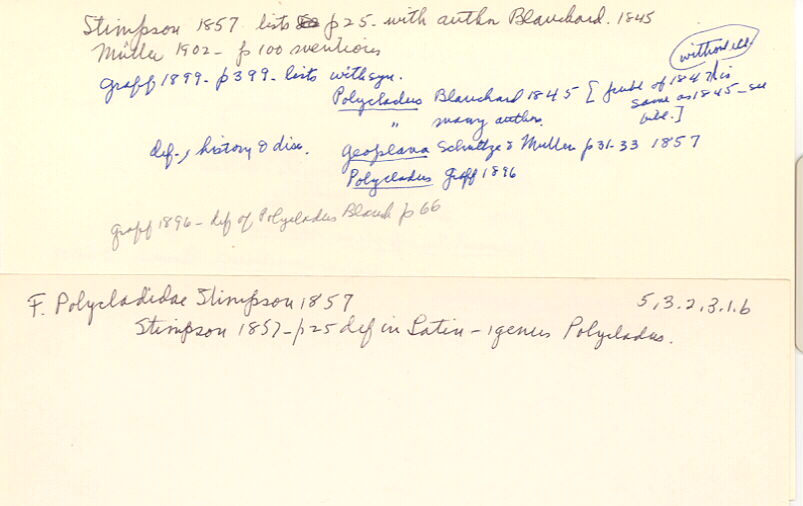 Stimpson 1857 lists p25 - with author Blanchard. 1845
Müller 1902 - p100 mentions
Graff 1899 - p399 - lists with syn.
Polycladus Blanchard 1845 [ of 1847 is same as 1845 - see
without ill.
" many author.
def., history & disc. Geoplana Schultze & Muller p31-33 1857
Polycladus Graff 1896
Graff 1896 - def of Polycladus Blanch p66
F. Polycladidae Stimpson 1857 5,3.2,3.1.b
Stimpson 1857 - p25 def in Latin - 1 genus Polycladus.